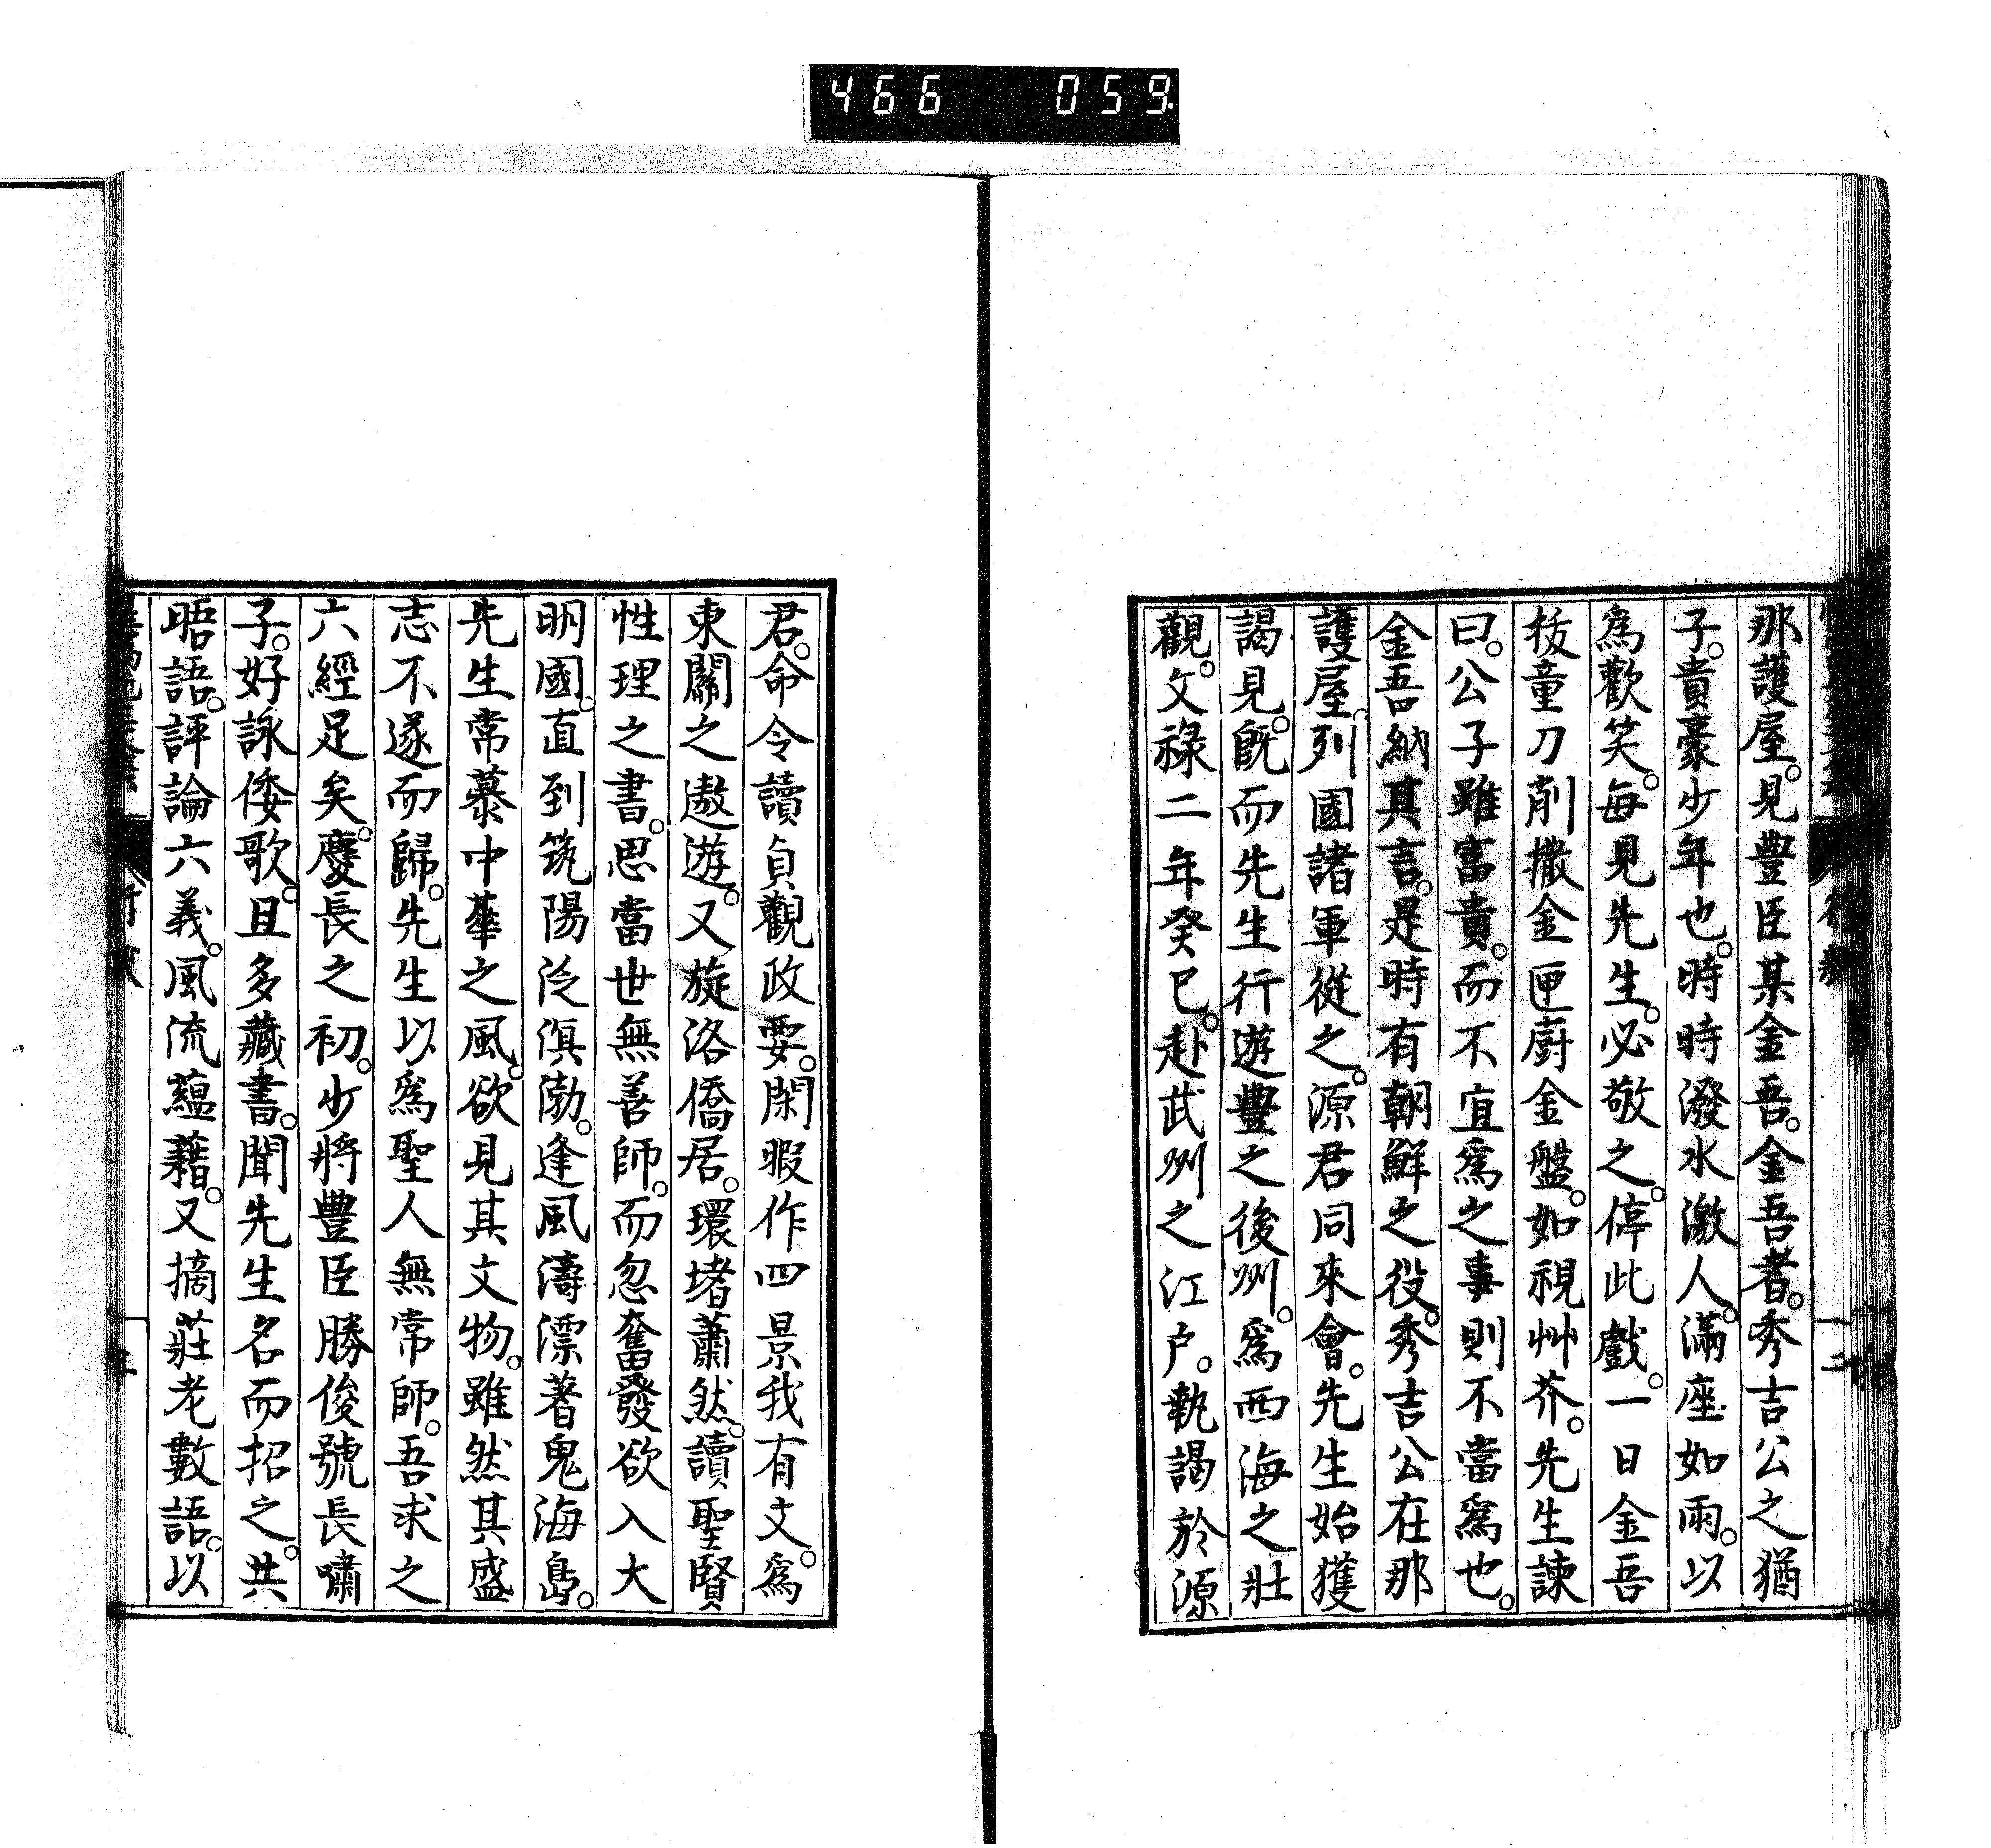 466 059
那護屋。見豊臣某金吾。金吾者。秀吉公之猶
子。貴豪少年也。時時潑水激人。滿座如雨。以
爲歡笑。每見先生。必敬之。停此戲。一日金吾
拔童刀削撒金匣廚金盤。如視艸芥。先生諫
曰。公子雖富貴。而不宜爲之事則不當爲也。
金吾納其言。是時有朝鮮之役。秀吉公在那
護屋。列國諸軍從之。源君同來會。先生始獲
謁見。旣而先生行遊豊之後州。爲西海之壯
觀。文祿二年癸巳。赴武州之江户。執謁於源
君。命令讀貞觀政要。閑暇作四景我有文。爲
東關之遨遊。又旋洛僑居。環堵蕭然。讀聖賢
性理之書。思當世無善師。而忽奮發欲入大
明國。直到筑陽泛溟渤。逢風濤漂著鬼海島。
先生常慕中華之風。欲見其文物。雖然其盛
志不遂而歸。先生以爲聖人無常師。吾求之
六經足矣。慶長之初。少將豊臣勝俊號長嘯
子。好詠倭歌。且多藏書。聞先生名而招之。共
晤語。評論六義。風流蘊藉。又摘莊老數語。以